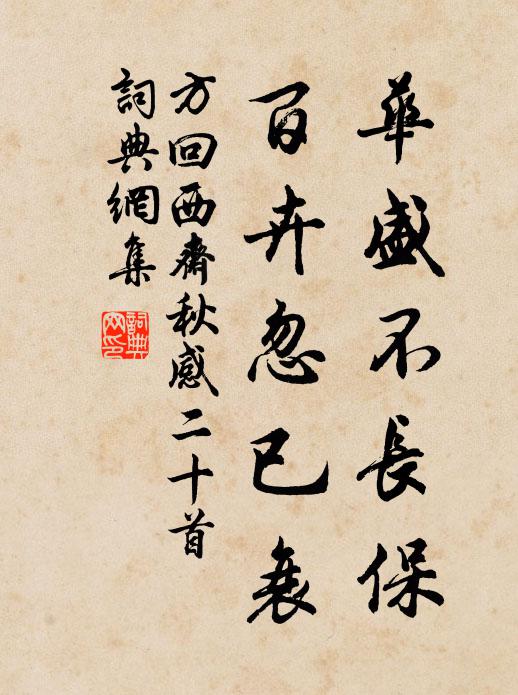 華盛不長保
百卉忽已衰
方回西齋秋感二十首
詞典網集
詞典網印